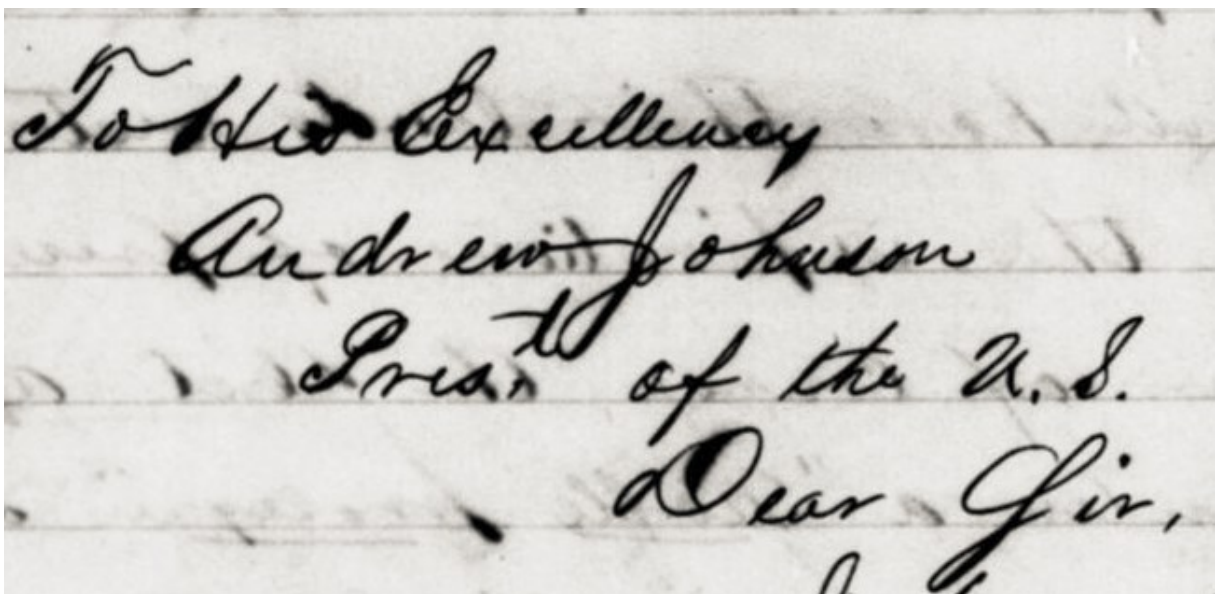 To His Excellency
Andrew Johnson
Pres.t of the U. S.
Dear Sir,